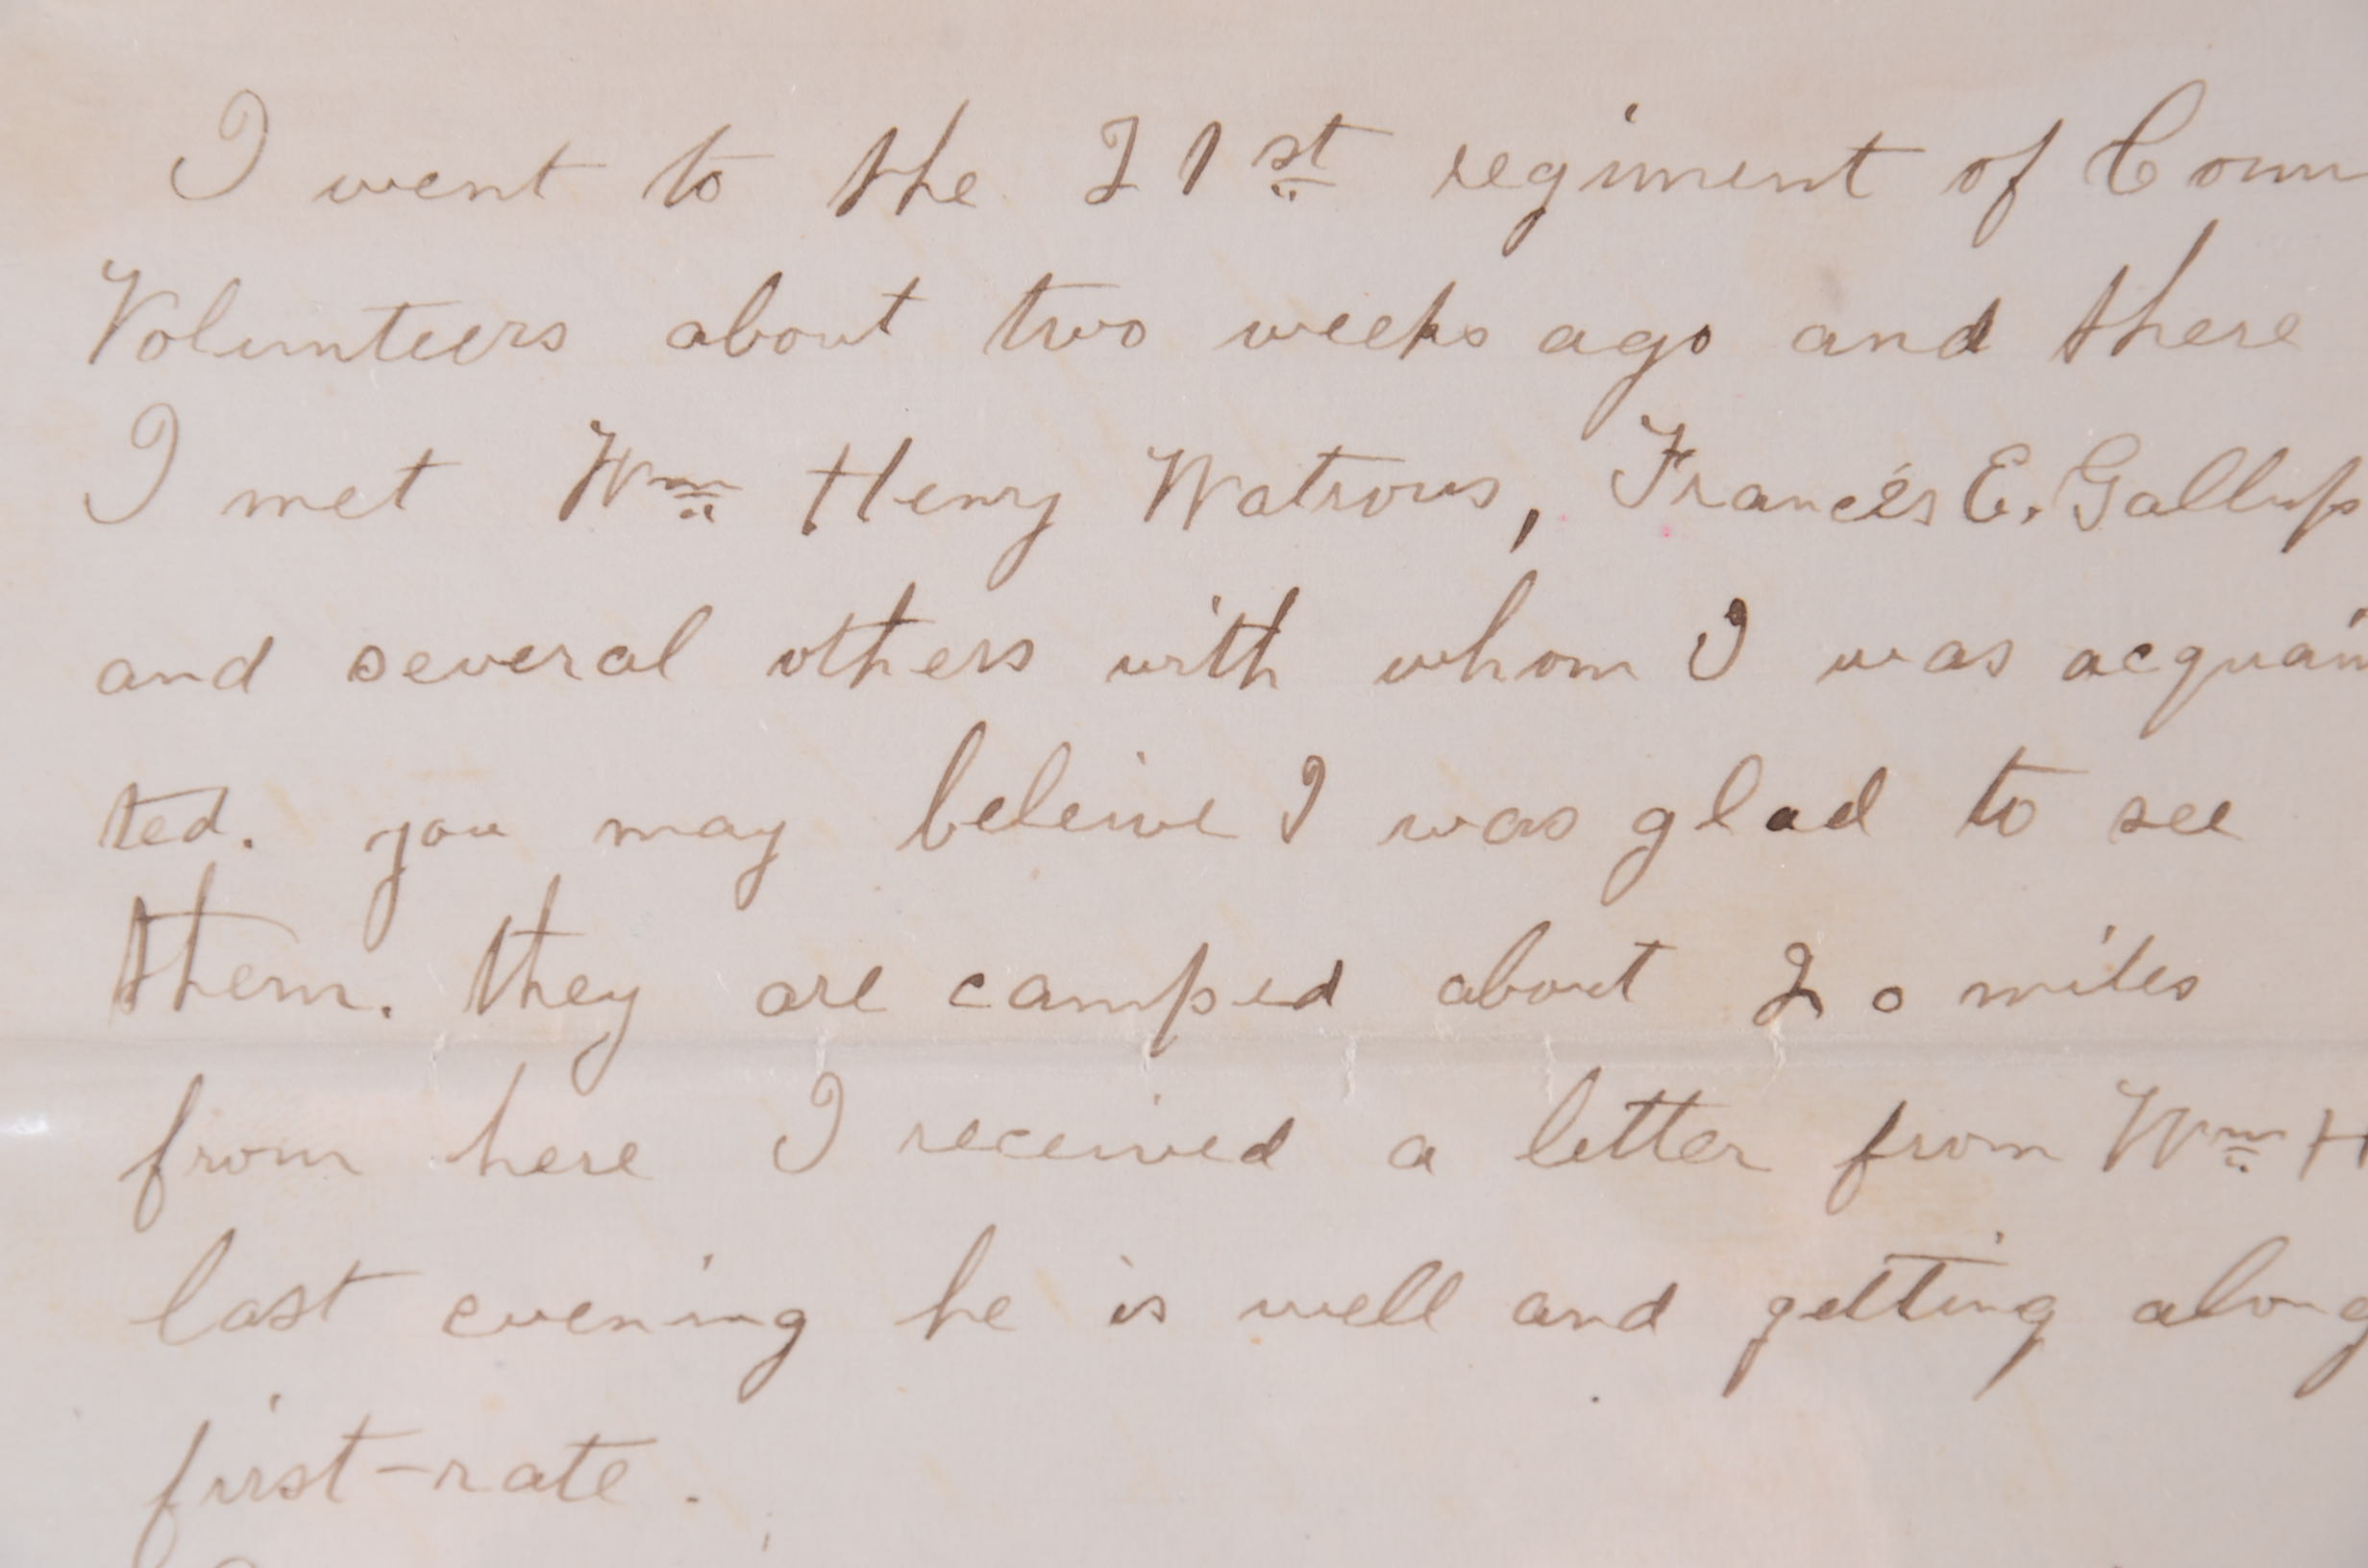 I went to the 21st regiment of Conn
Volunteers about two weeks ago and there
I met Wm Henry Watrous, Francis E. Gallup
and several others with whom I was acquain
ted. you may beleive I was glad to see
them. they are camped about 20 miles
from here I received a letter from Wm H
last evening he is well and getting along
first-rate.